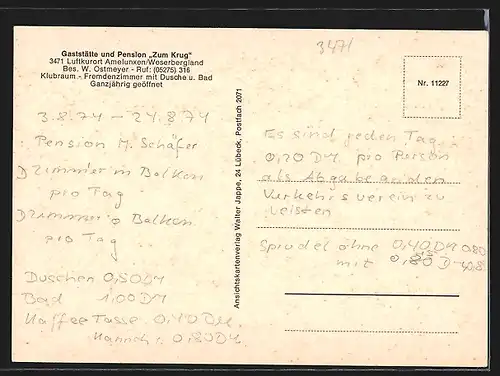 Gaststätte und Pension „Zum Krug"
3471 Luftkurort Amelunxen/Weserbergland
Bes. W. Ostmeyer - Ruf: (05275) 316
Klubraum - Fremdenzimmer mit Dusche u. Bad
Ganzjährig geöffnet
3471
Nr. 11227
3.8.74 – 24.8.74
Pension M. Schäfer
D Zimmer m Balkon
pro Tag
D Zimmer o Balkon
pro Tag
Duschen 0,50 DM
Bad 1.00 DM
Kaffee Tasse 0,40 DM
Kännch. 0,80 DM
Ansichtskartenverlag Walter Jappe, 24 Lübeck, Postfach 2071
Es sind jeden Tag
0,20 DM pro Person
als Abgabe an den
Verkehrsverein zu
leisten
Sprudel ohne 0,40 DM 0.80
mit